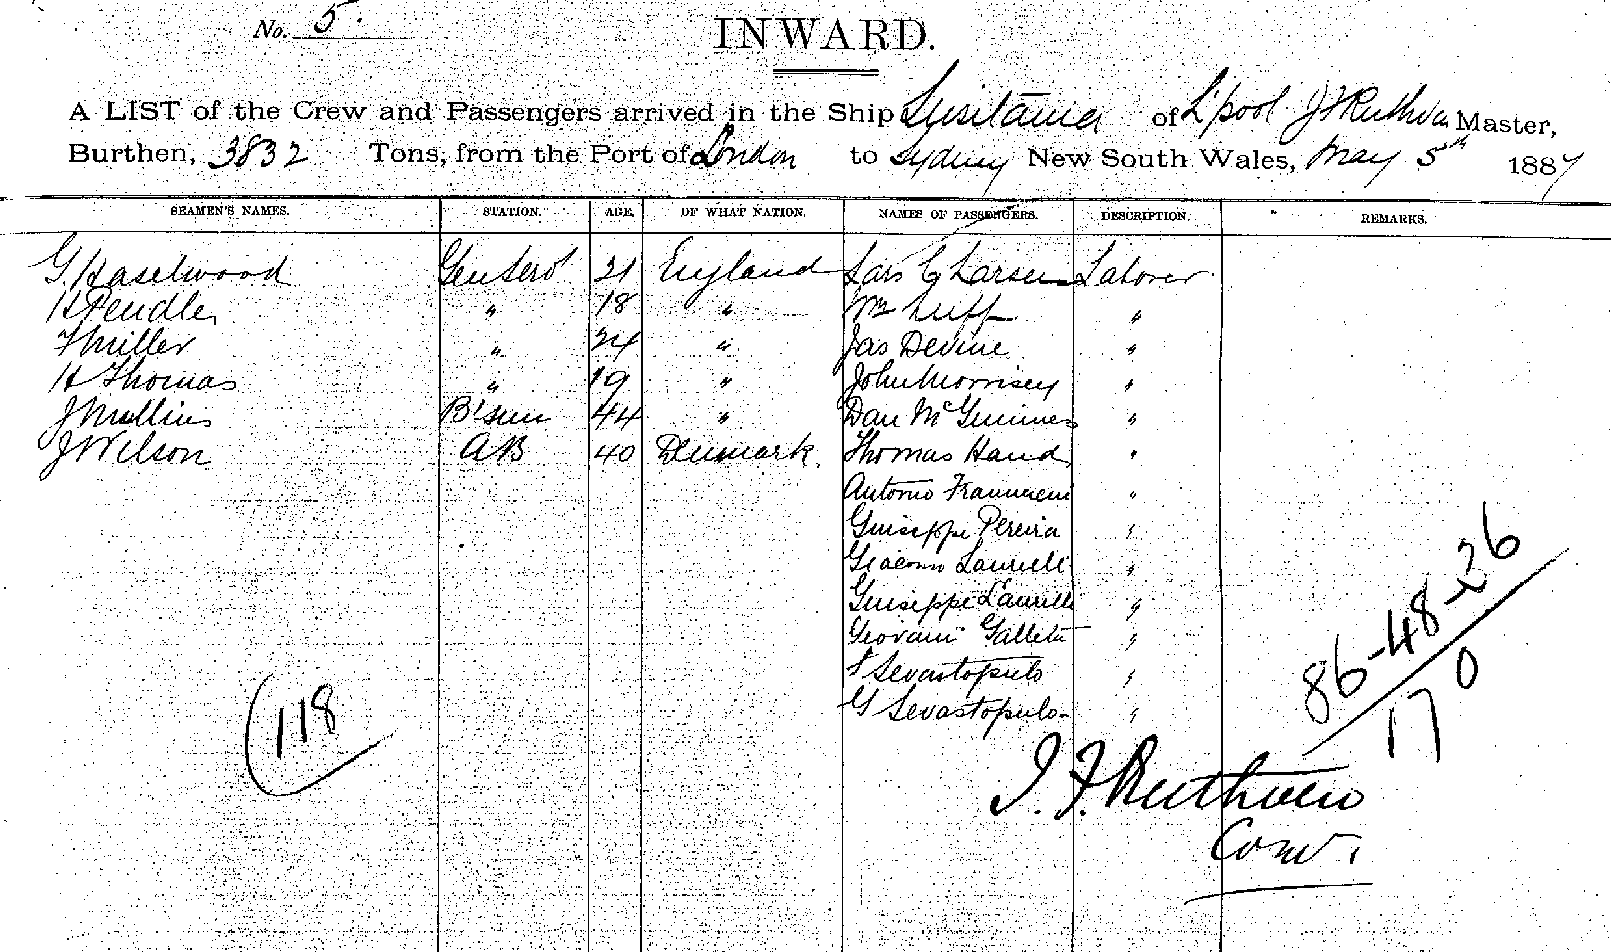 No. 5.
INWARD.
A LIST of the Crew and Passengers arrived in the Ship Lusitania of L'pool J F Ruthven Master,
Burthen, 3832 Tons, from the Port of London to Sydney New South Wales, May 5th 1887
SEAMEN'S NAMES. STATION. AGE. OF WHAT NATION. NAMES OF PASSENGERS. DESCRIPTION. REMARKS.
G. Haselwood Gen Serv't 21 England Lars C Larsen Laborer
H Pendler " 18 " Wm Luff "
F Miller " 24 " Jas Devine "
H Thomas " 19 " John Morrisey "
J Mullins B'sun 44 " Dan McGuinness "
J Wilson AB 40 Denmark. Thomas Hand "
Antonio "
Guiseppe Pereira "
Giacomo Laurelli "
Guiseppe Laurelli "
Geovani Galletti "
Sevastopulo "
G Sevastopulo "
86-48-26
170
118
J. F. Ruthven
Com'r.